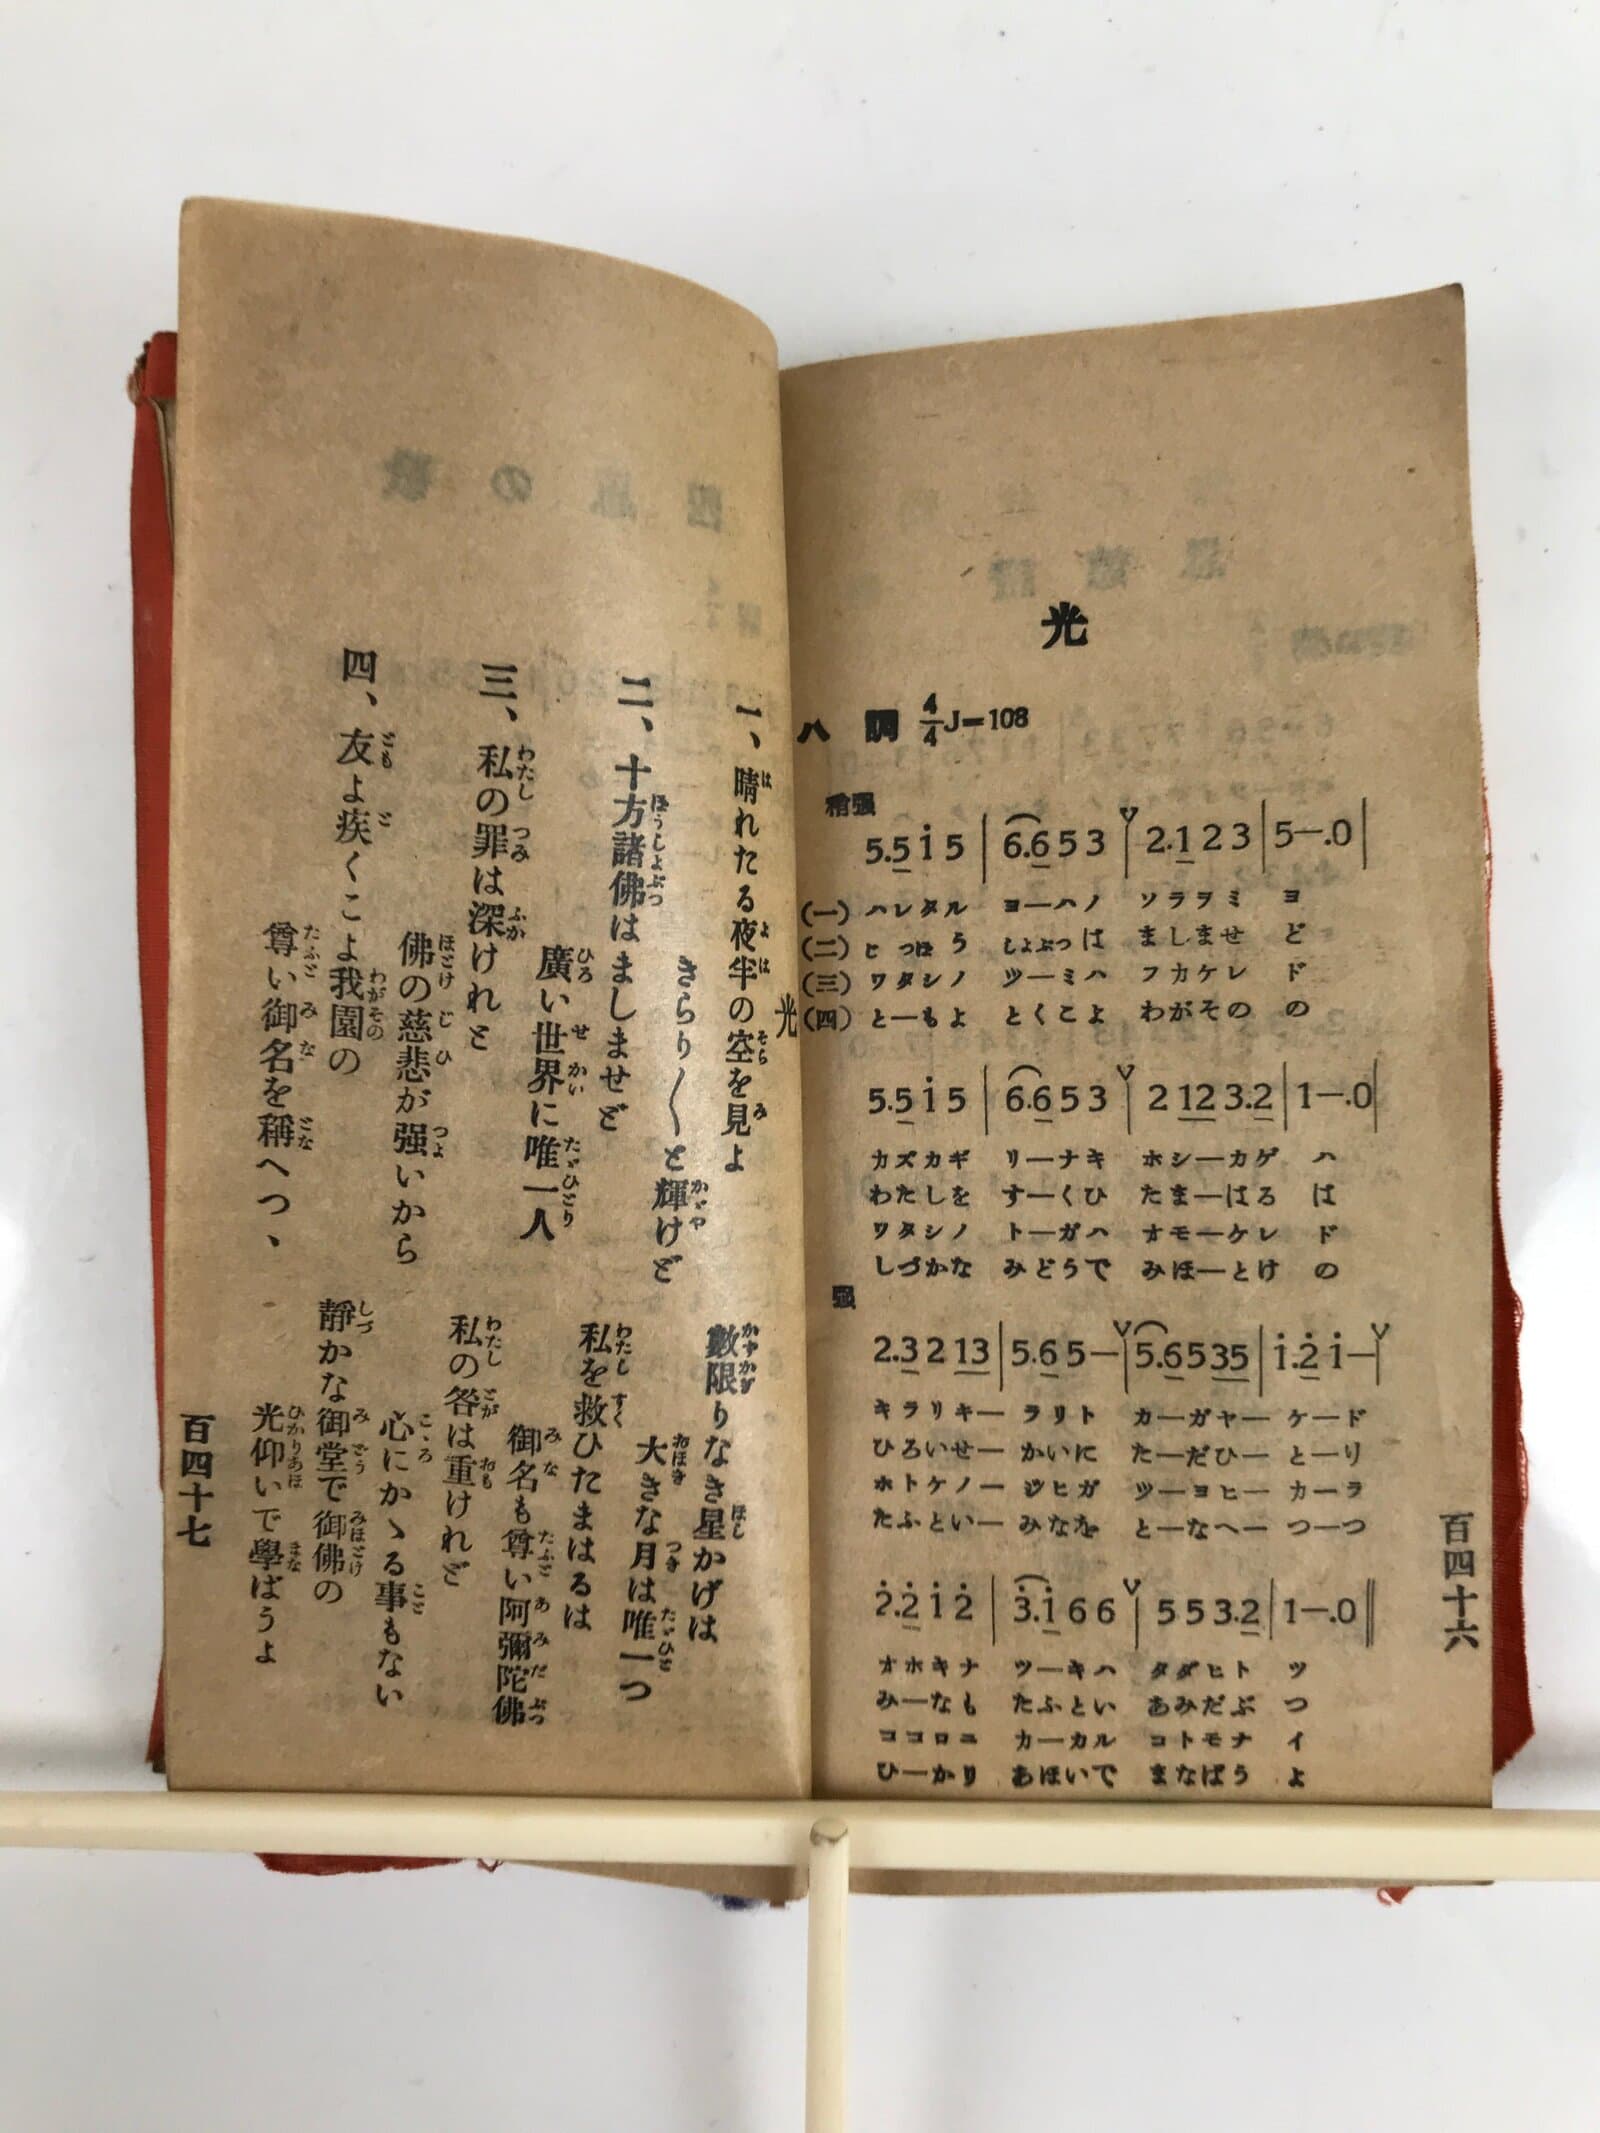 光
ハ調 4/4 J=108
稍强
5.5 i 5 | 6.6 5 3 | 2.1 2 3 | 5—.0 |
(一) ハレタル ヨ—ハノ ソラヲミ ヨ
(二) じっぽう しょぶつは ましませ ど
(三) ワタシノ ツ—ミハ フカケレ ド
(四) と—もよ とくこよ わがその の
5.5 i 5 | 6.6 5 3 | 2 12 3.2 | 1—.0 |
カズカギ リ—ナキ ホシ—カゲ ハ
わたしを す—くひ たま—はる は
ワタシノ ト—ガハ オモ—ケレ ド
しづかな みどうで みほ—とけ の
强
2.3 2 13 | 5.6 5— | 5.6 5 35 | i.2 i— |
キラリキ— ラリト カ—ガヤ— ケ—ド
ひろいせ— かいに た—だひ— と—り
ホトケノ— ジヒガ ツ—ヨヒ— カ—ラ
たふとい— みなを と—なへ— つ—つ
2.2 i 2 | 3.i 6 6 | 5 5 3.2 | 1—.0 ||
オホキナ ツ—キハ タダヒト ツ
み—なも たふとい あみだぶ つ
ココロニ カ—カル コトモナ イ
ひ—かり あほいで まなばう よ
百四十六
光
一、晴れたる夜半の空を見よ
數限りなき星かげは
きらり〱と輝けど
大きな月は唯一つ
二、十方諸佛はましませど
私を救ひたまはるは
廣い世界に唯一人
御名も尊い阿彌陀佛
三、私の罪は深けれど
私の咎は重けれど
佛の慈悲が强いから
心にかゝる事もない
四、友よ疾くこよ我園の
靜かな御堂で御佛の
尊い御名を稱へつゝ
光仰いで學ばうよ
百四十七